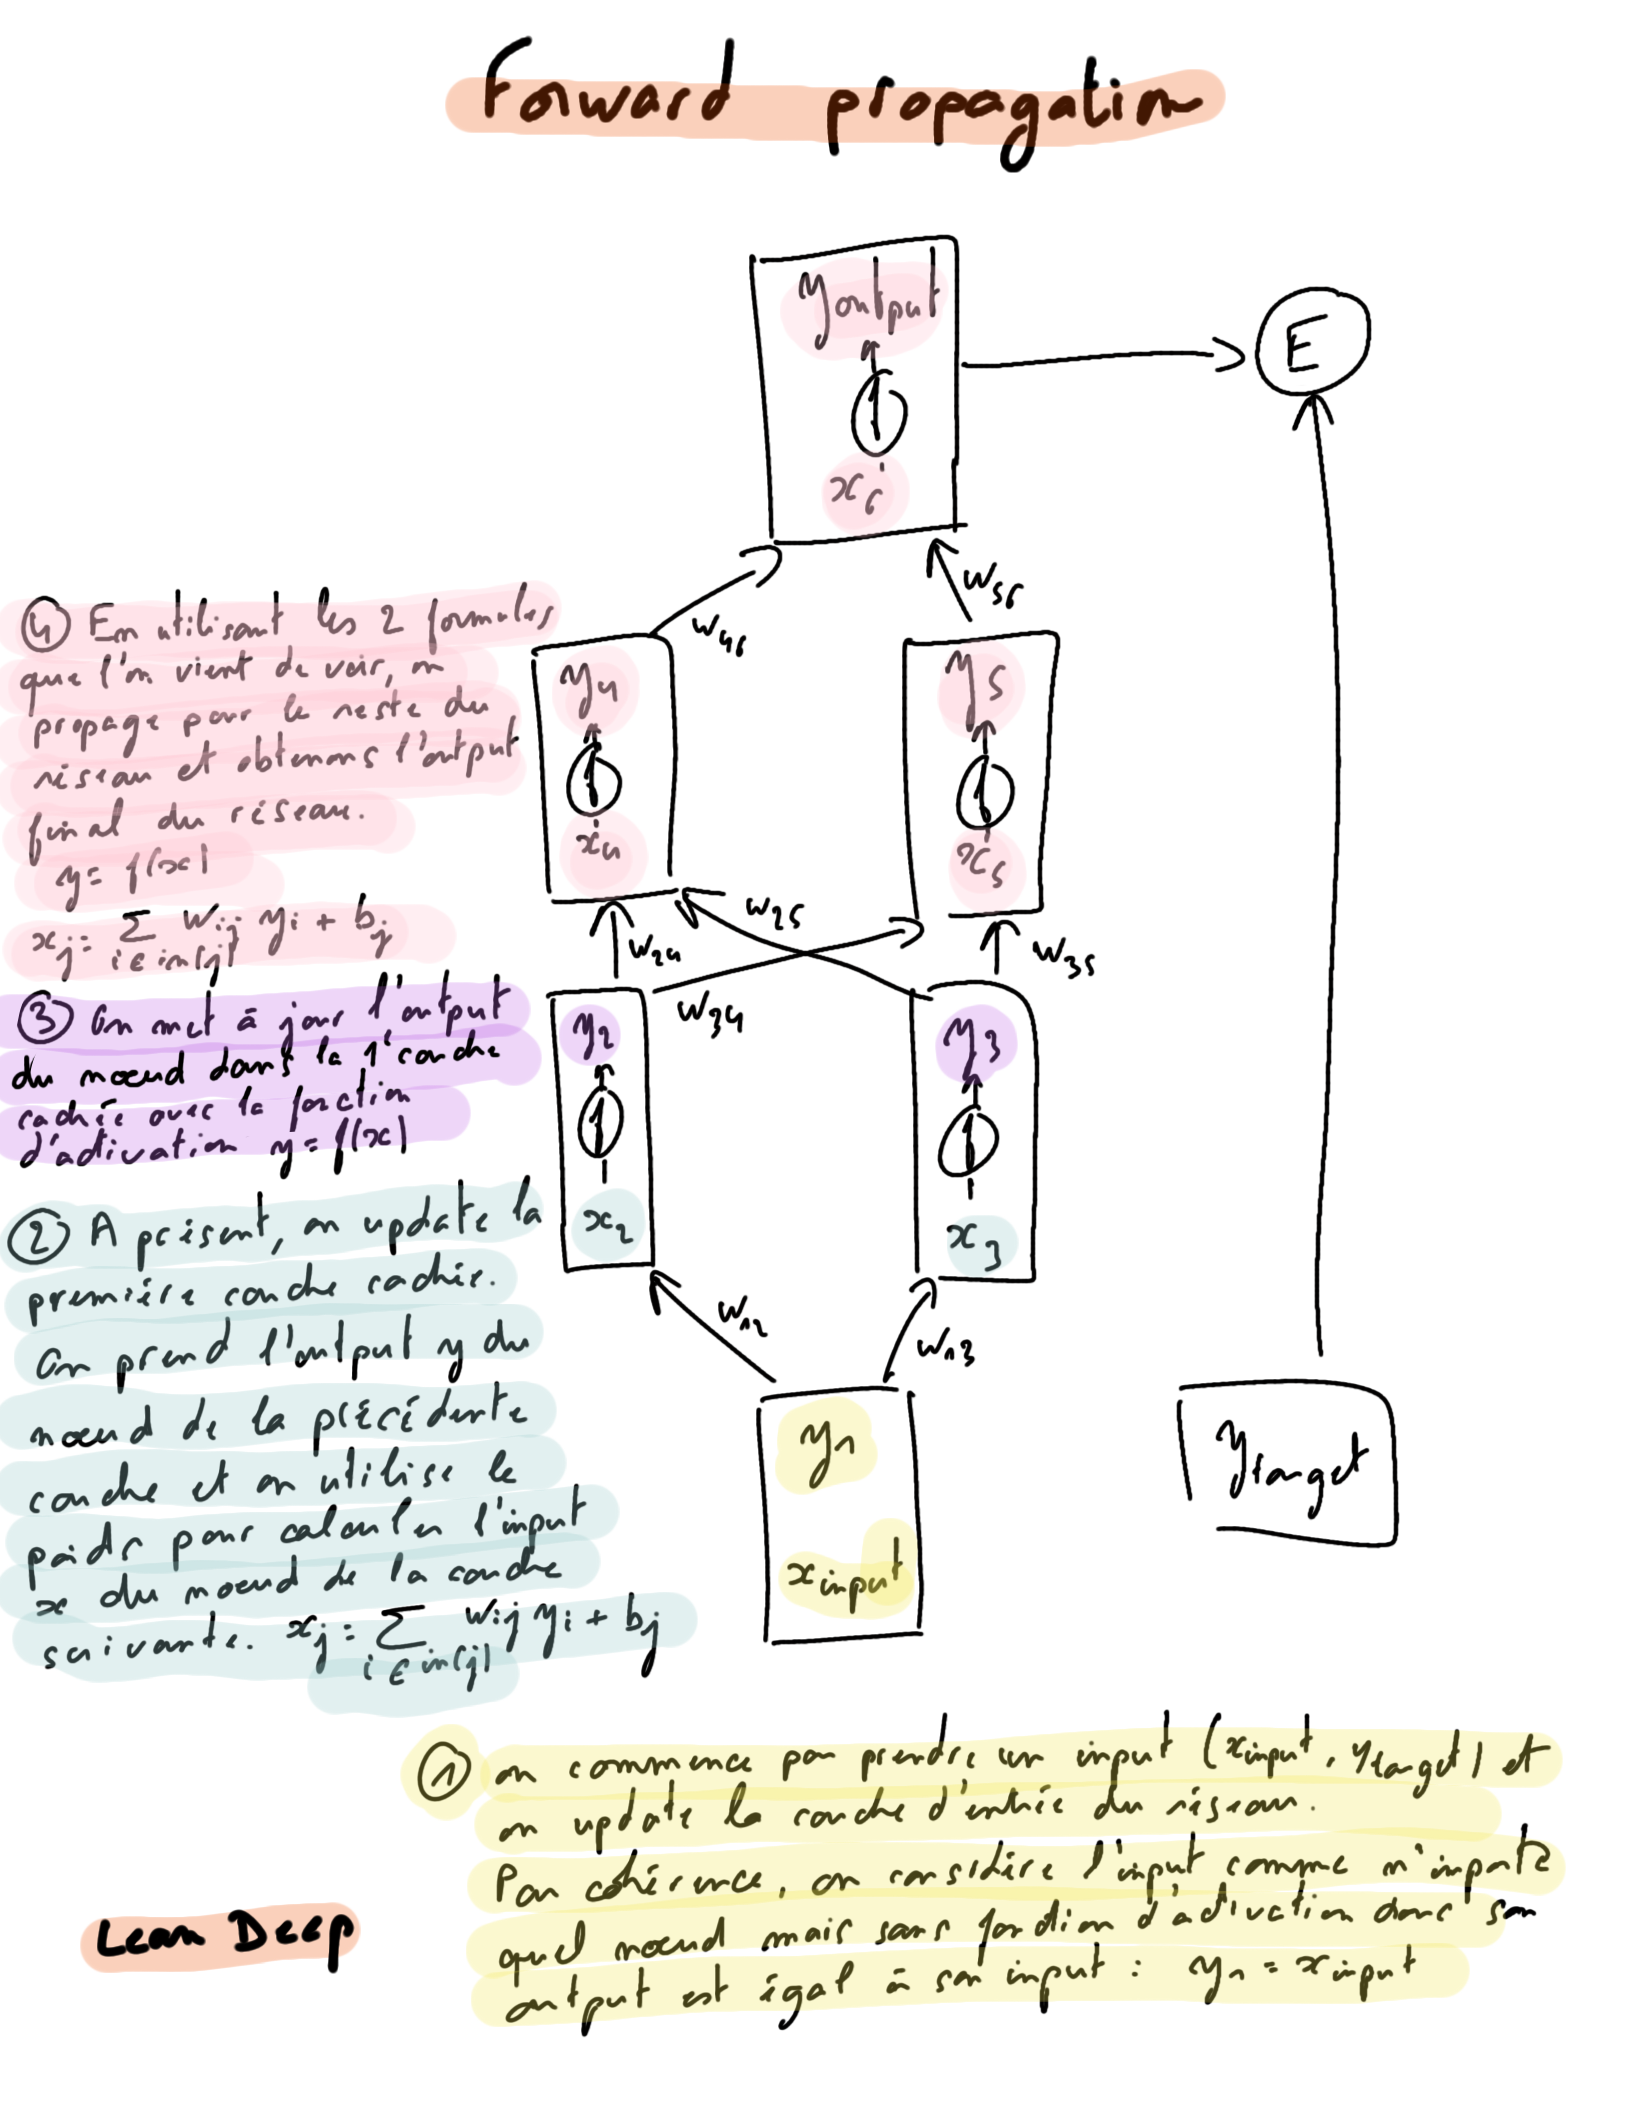 Forward propagation
youtput
E
x6
w46
w56
④ En utilisant les 2 formules
que l'on vient de voir, on
propage pour le reste du
réseau et obtenons l'output
final du réseau.
y = f(x)
xj = Σ wij yi + bj
i ∈ in(j)
y4
x4
y5
x5
w24
w25
w34
w35
③ On met à jour l'output
du nœud dans la 1e couche
cachée avec la fonction
d'activation y = f(x)
y2
x2
y3
x3
② A présent, on update la
première couche cachée.
On prend l'output y du
nœud de la précédente
couche et on utilise le
poids pour calculer l'input
x du nœud de la couche
suivante. xj = Σ wij yi + bj
i ∈ in(j)
w12
w13
y1
xinput
ytarget
① on commence par prendre un input (xinput, ytarget) et
on update la couche d'entrée du réseau.
Par cohérence, on considère l'input comme n'importe
quel nœud mais sans fonction d'activation donc son
output est égal à son input : y1 = xinput
Lean Deep